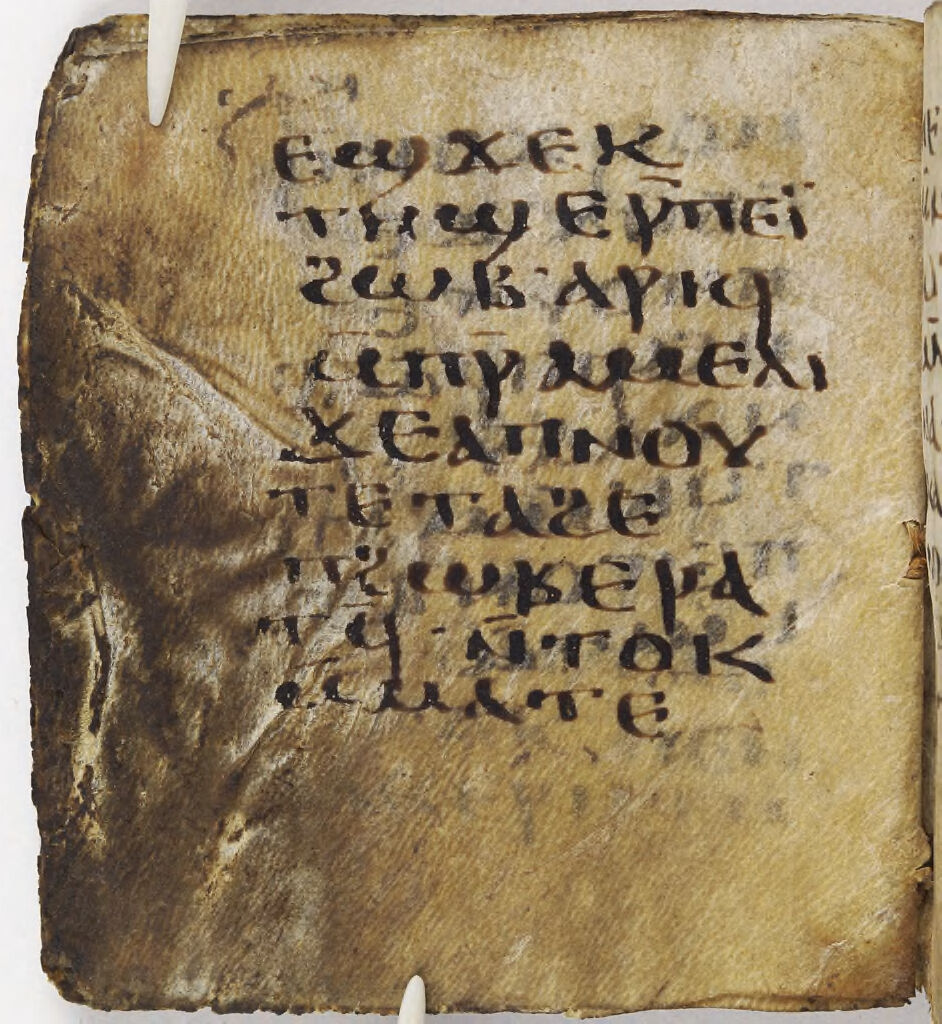 ⲉϣϫⲉⲕ
ⲧⲏϣⲉⲣ̄ⲡⲉⲓ̈
ϩⲱⲃ·ⲁⲣⲓϥ
ⲙ̄ⲡⲣ̄ⲁⲙⲉⲗⲓ
ϫⲉⲁⲡⲛⲟⲩ
ⲧⲉⲧⲁϩⲉ
ⲡϩⲱⲃⲉⲣⲁ
ⲧϥ̄·ⲛ̄ⲧⲟⲕ
ⲙ̄ⲙⲁⲧⲉ